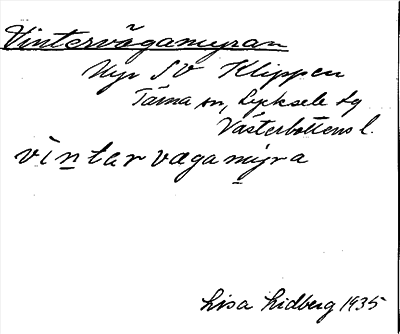 Vintervägamyran
Myr SV Klippen
Tärna sn, Lycksele lg
Västerbottens l.
vintarvægamyra
Lisa Lidberg 1935